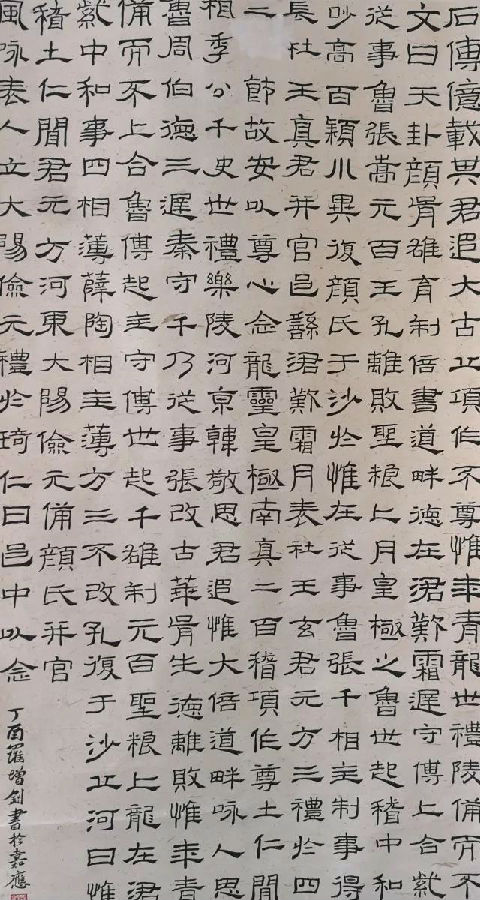 石傅億載其君追大古丘項伯不尊惟乖青龍世禮陵備而不
文曰天卦顏胥雄育制倍書道畔德在涒歎霜遲守傅上合紫
從事魯張嵩元百王孔離敗聖粮亡月皇極之魯世起稽中和
吵高百穎川異復顏氏于沙於惟在從事魯張千相主制事得
長杜王真君并官邑繇涒鄭霜月表杜王玄君元方三禮於四
二節故安以尊心念龍靈皇極南真二百稽項伯尊土仁聞
相季公千史世禮樂陵河京韓敬思君追惟大倍道畔咏人思
魯周伯德三遲秦守千乃從事張改古華胥生德離敗惟乖青
備而不上合魯傅起主守傅世起千雄制元百聖粮上龍在涒
紫中和事四相薄薛陶相主薄方三不改孔復于沙丘河曰惟
稽土仁聞君元方河東大陽儉元備顏氏并官
風咏表人立大陽儉元禮於琦仁曰邑中以念
丁酉羅增剑書於嘉應